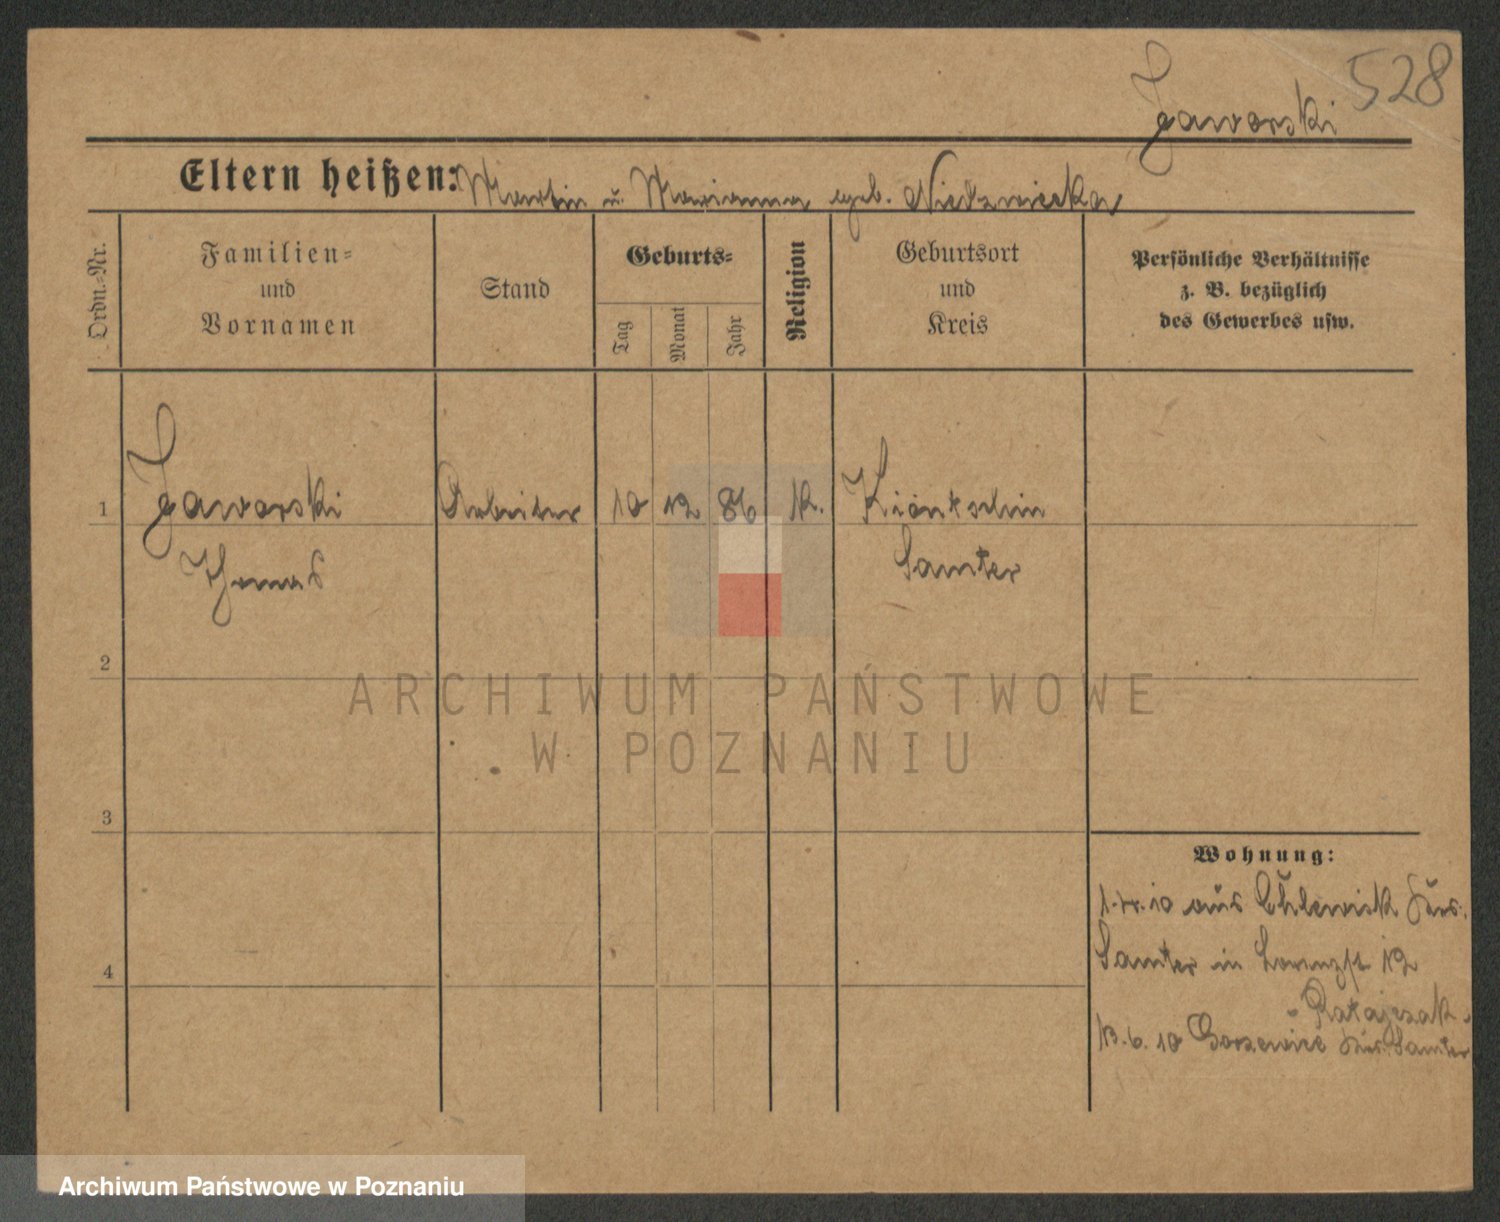 528
Jaworski
Eltern heißen: Martin u. Marianna geb. Niedzwiecka
Ordn.-Nr.
Familien-
und
Vornamen
Stand
Geburts-
Tag
Monat
Jahr
Religion
Geburtsort
und
Kreis
Persönliche Verhältnisse
z. B. bezüglich
des Gewerbes usw.
1 Jaworski Arbeiter 10 12 86 k. Kiontschin
Thomas Samter
2
3
4
Wohnung:
aus Chlewisk Krs.
Samter in Lorenzstr 12
Ratajczak
13.6.10 Gorszewice Krs. Samter
ARCHIWUM PAŃSTWOWE
W POZNANIU
Archiwum Państwowe w Poznaniu